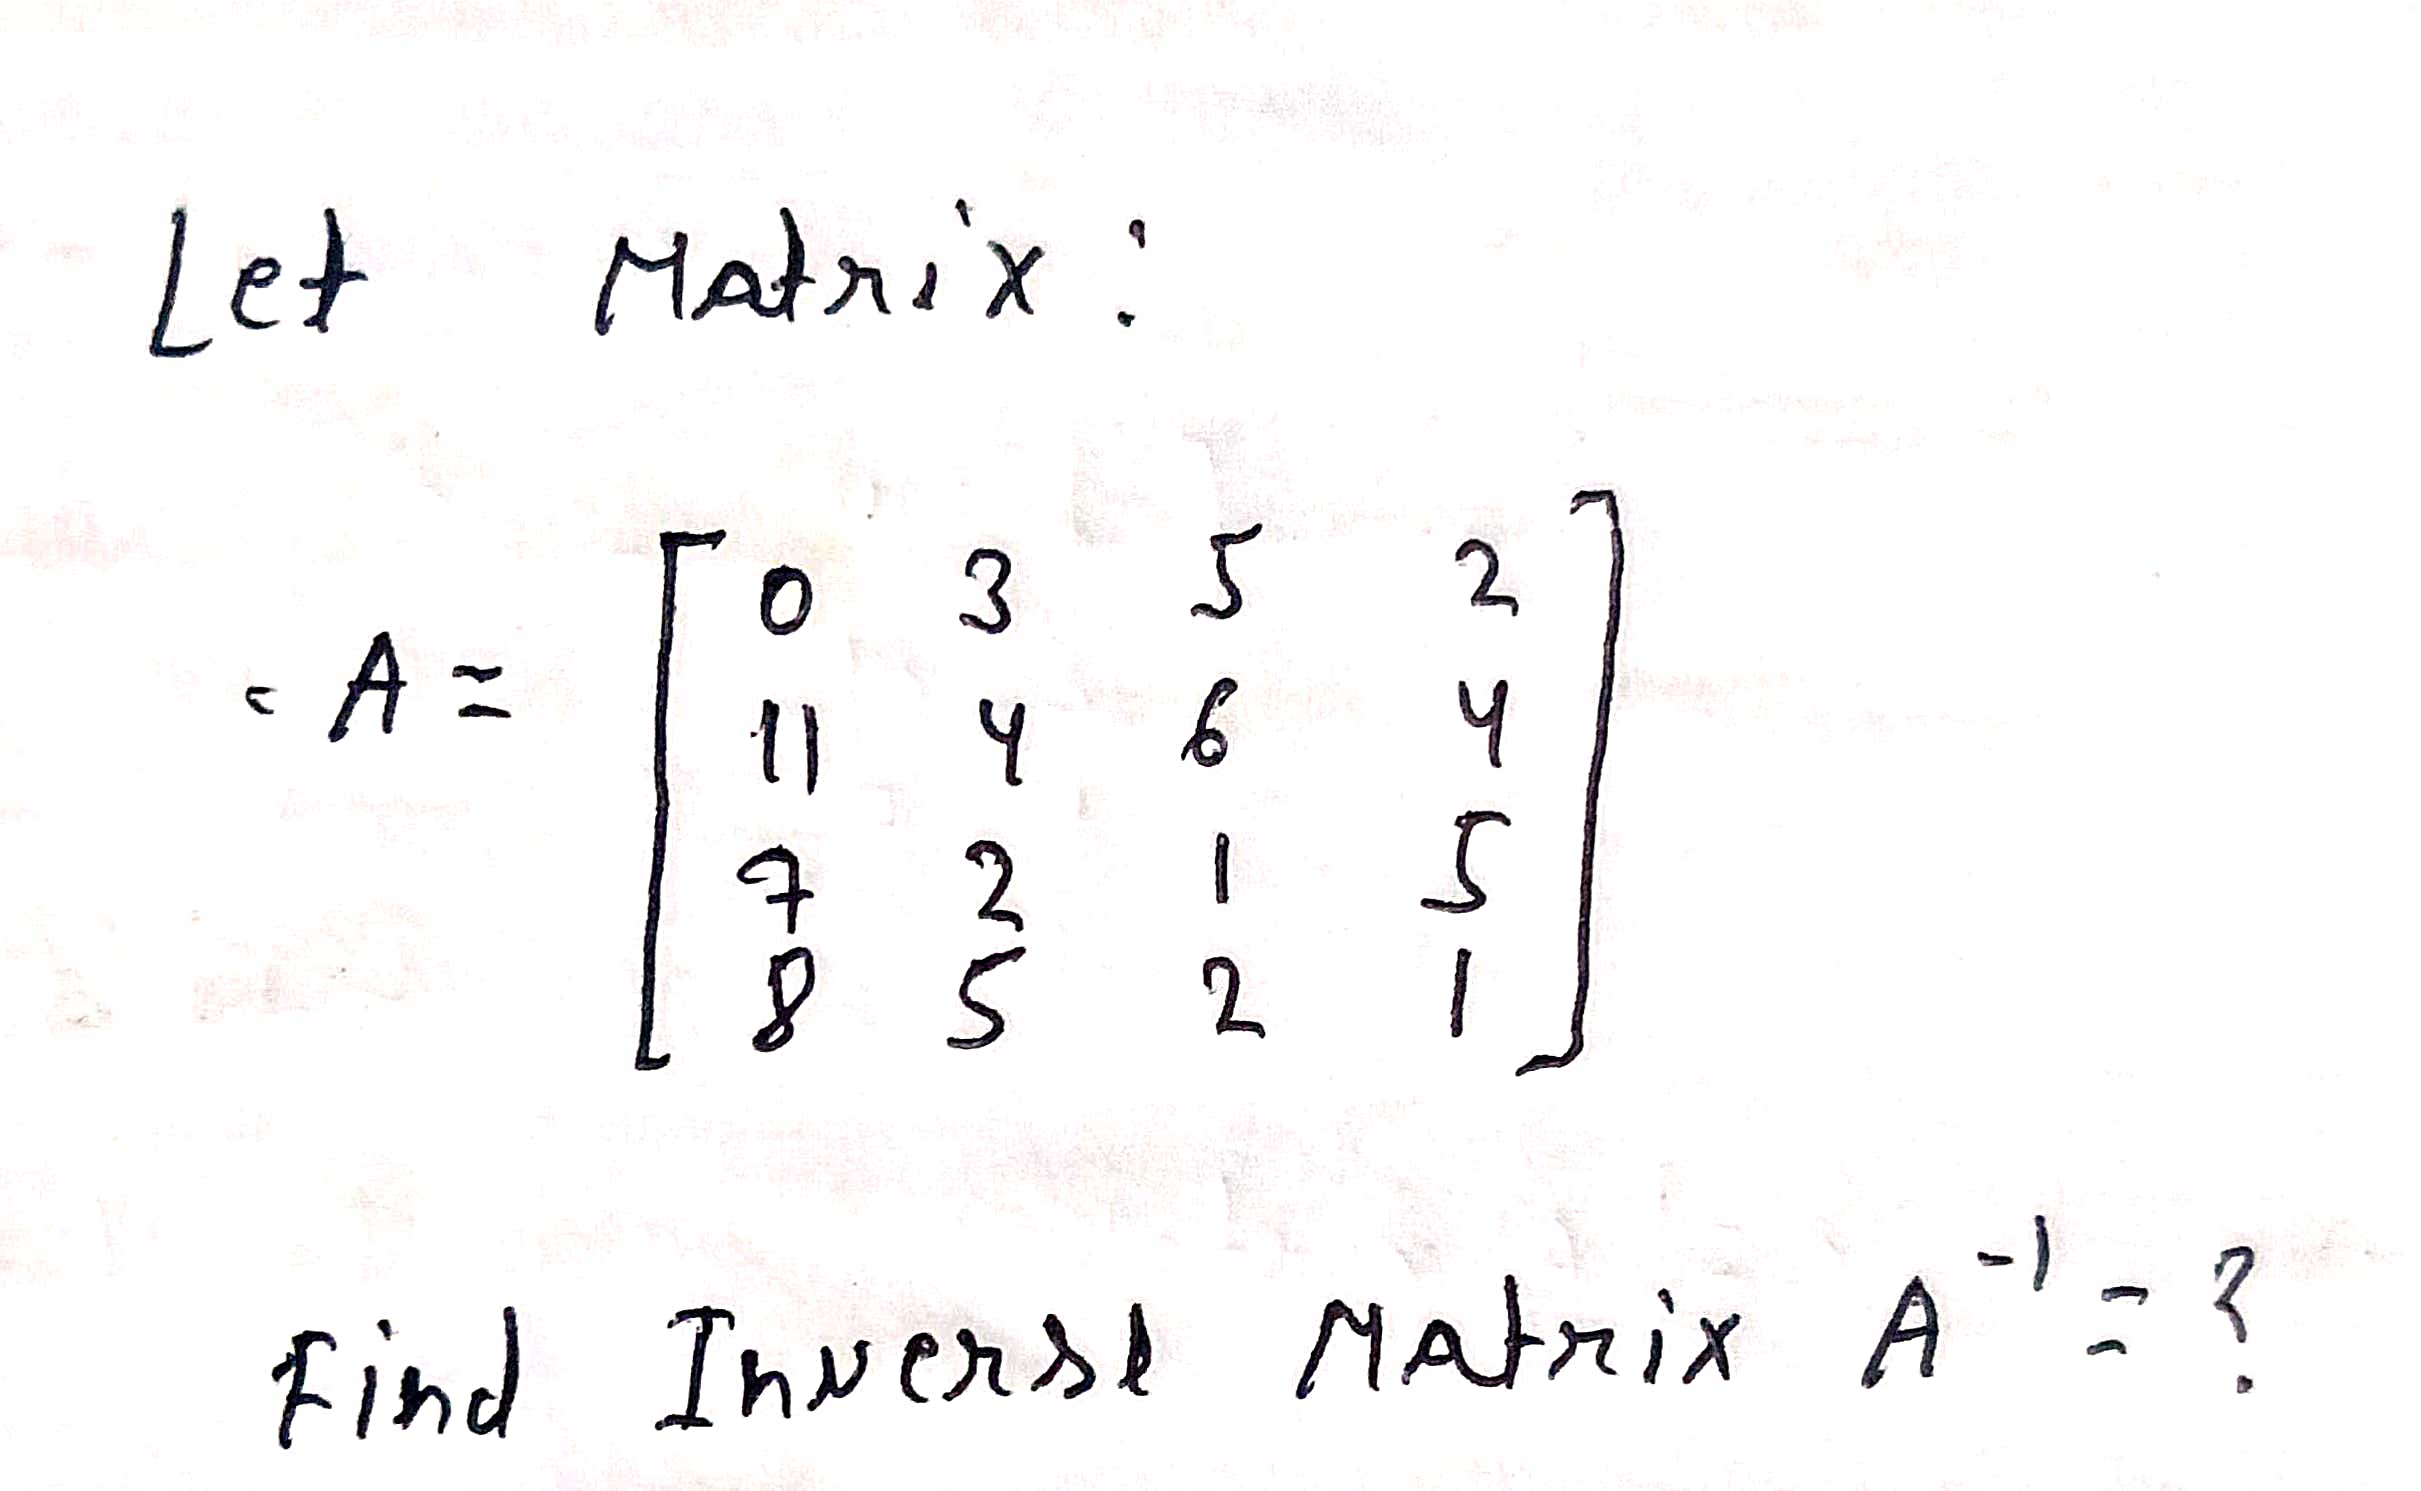 Let Matrix:
A = [ 0 3 5 2
11 4 6 4
7 2 1 5
8 5 2 1 ]
Find Inverse Matrix A⁻¹ = ?